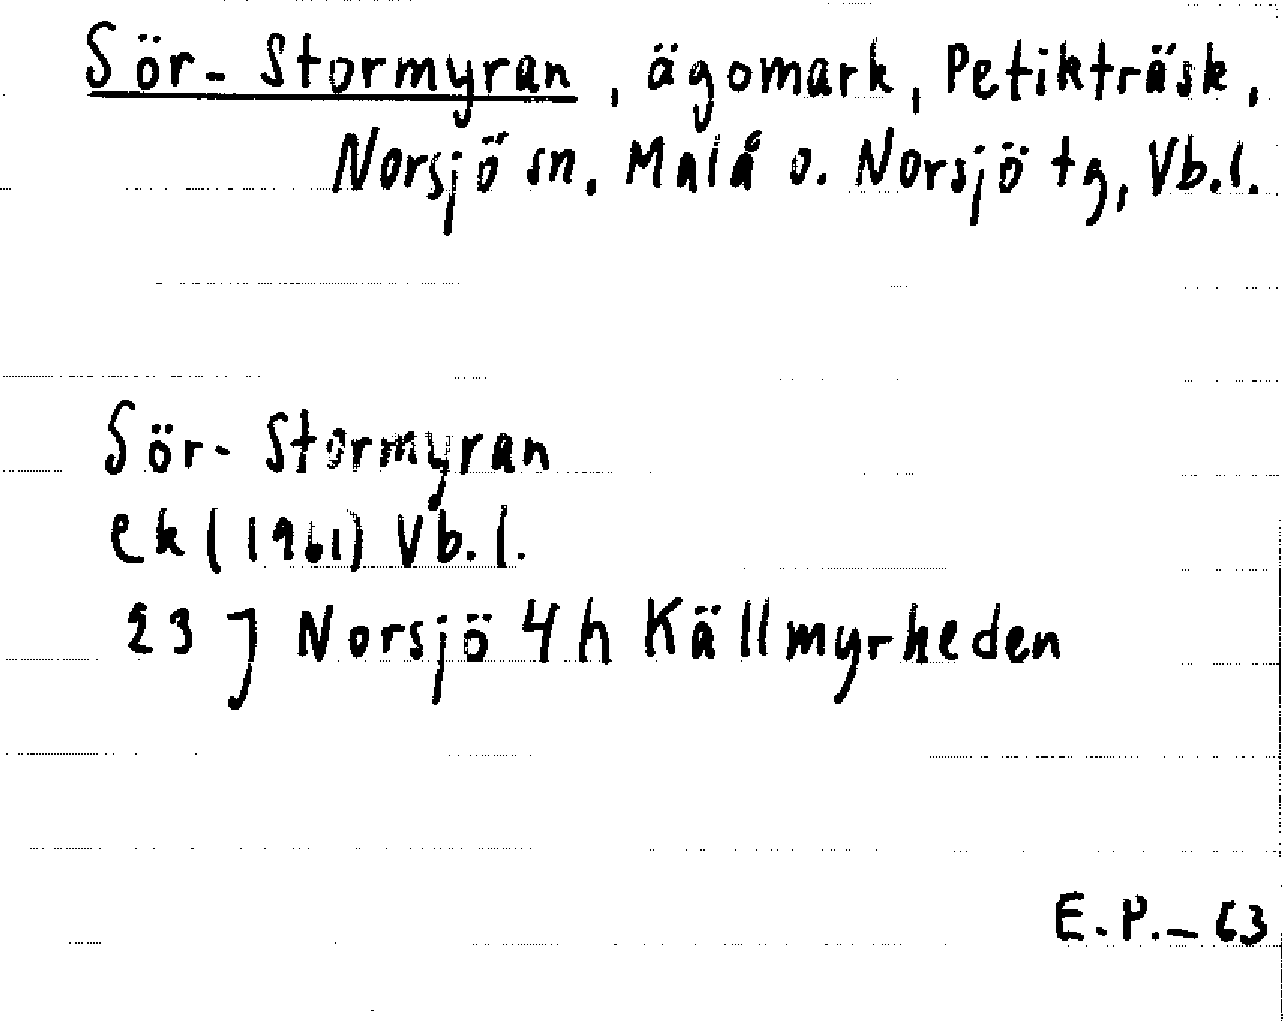 Sör-Stormyran, ägomark, Petikträsk,
Norsjö sn, Malå o. Norsjö tg, Vb.l.
Sör-Stormyran
ek (1961) Vb.l.
23 J Norsjö 4 h Källmyrheden
E.P.-63